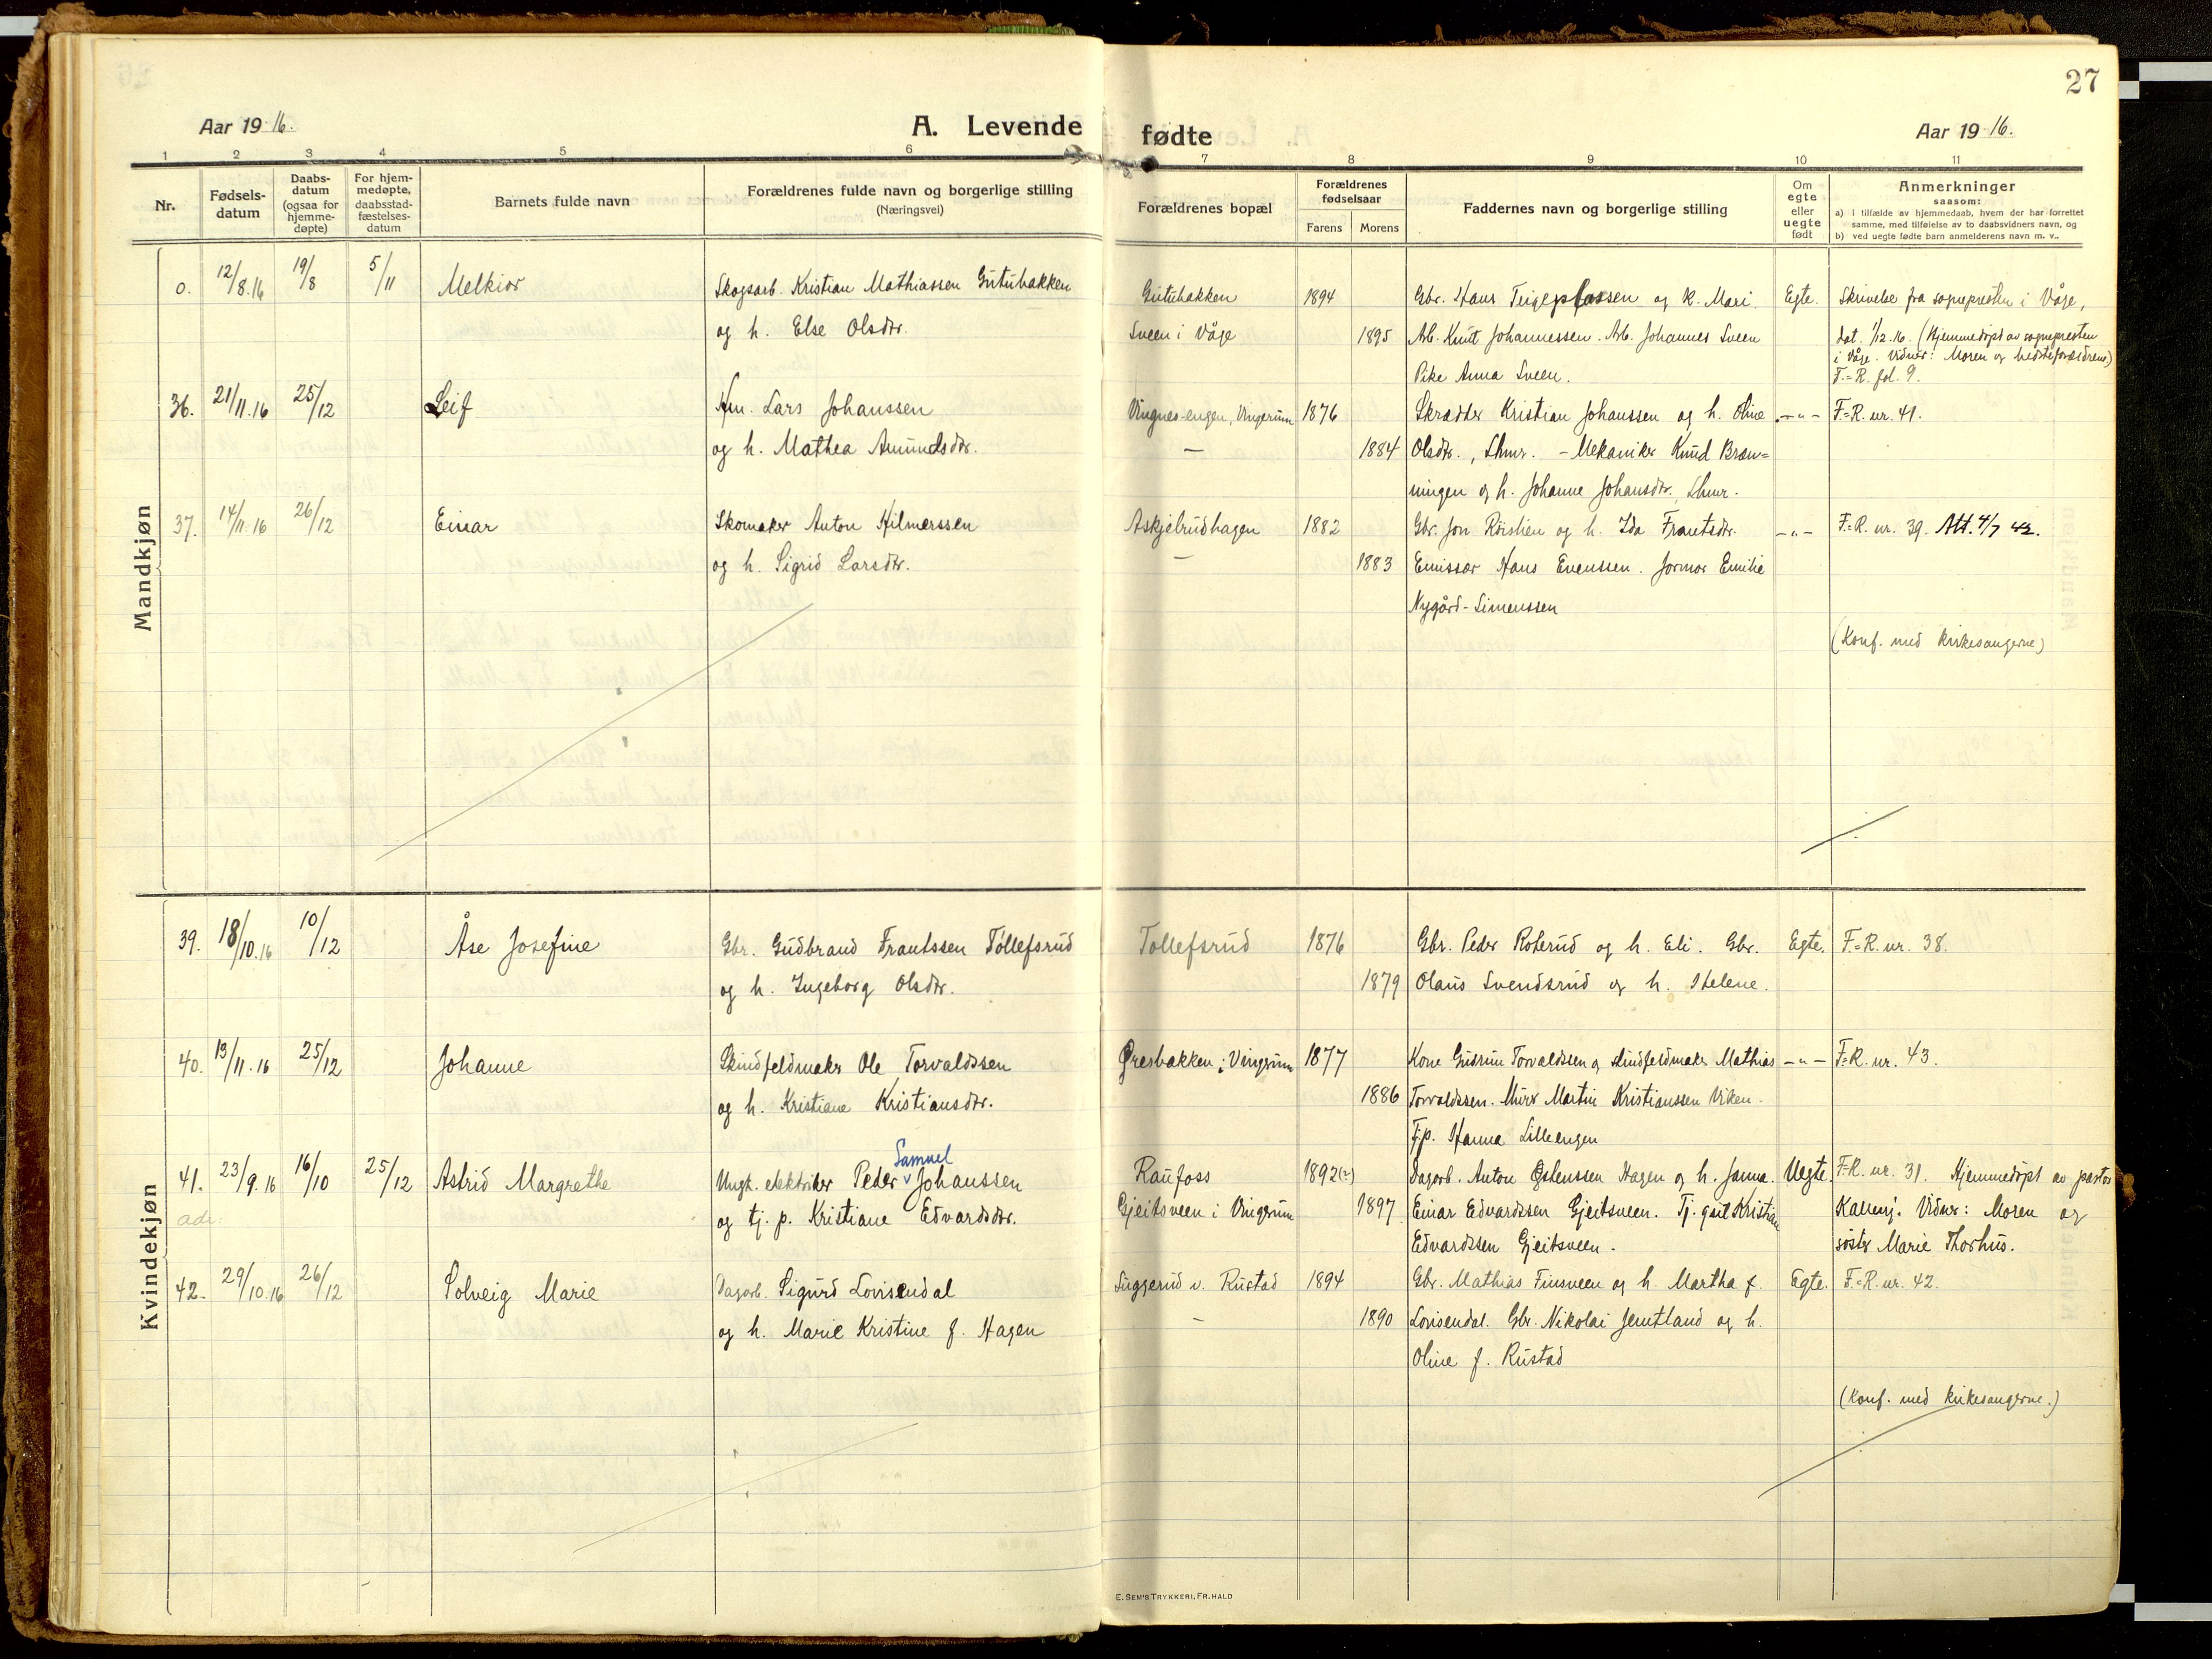 27
Aar 1916.
A. Levende
fødte
Aar 1916.
1 2 3 4 5 6 7 8 9 10 11
Nr.
Fødsels-
datum
Daabs-
datum
(ogsaa for
hjemme-
døpte)
For hjem-
medøpte,
daabsstad-
fæstelses-
datum
Barnets fulde navn
Forældrenes fulde navn og borgerlige stilling
(Næringsvei)
Forældrenes bopæl
Forældrenes
fødselsaar
Farens Morens
Faddernes navn og borgerlige stilling
Om
egte
eller
uegte
født
Anmerkninger
saasom:
a) I tilfælde av hjemmedaab, hvem der har forrettet
samme, med tilføielse av to daabsvidners navn, og
b) ved uegte fødte barn anmelderens navn m. v..
Mandkjøn
0. 12/8.16 19/8 5/11 Melkior Skogsarb. Kristian Mathiassen Gutubakken Gutubakken 1894 Gbr. Hans Teigeplassen og k. Mari. Egte. Skrivelse fra sognepresten i Våge,
og h. Else Olsdtr. Sveen i Våge 1895 Arb. Knut Johannessen. Arb. Johannes Sveen dat. 1/12.16. (Hjemmedøpt av sognepresten
i Våge. Vidner: Moren og bedsteforældrene)
Pike Anna Sveen. F.=R. fol. 9.
36. 21/11.16 25/12 Leif Lars Johanssen Vingnes-engen, Vingerum 1876 Skrædder Kristian Johanssen og h. Oline -"- F=R. nr. 41.
og h. Mathea Amundsdtr. — 1884 Olsdtr., Lhmr. - Mekaniker Knud Bræn=
ningen og h. Johanne Johansdtr., Lhmr.
37. 14/11.16 26/12 Einar Skomaker Anton Hilmerssen Askjelrudhagen 1882 Gbr. Jon Roistien og h. Ida Frantsdtr. -"- F.=R. nr. 39. Att. 4/7 42.
og h. Sigrid Larsdtr. — 1883 Emissær Hans Evenssen. Jormor Emilie
Nygård-Simenssen
(Konf. med kirkesangerne)
Kvindekjøn
39. 18/10.16 10/12 Åse Josefine Gbr. Gudbrand Frantssen Tollefsrud Tollefsrud 1876 Gbr. Peder Roterud og h. Eli. Gbr. Egte. F=R. nr. 38.
og h. Ingeborg Olsdtr. 1879 Olaus Svendsrud og h. Helene.
40. 13/11.16 25/12 Johanne Skindfeldmaker Ole Torvaldssen Øresbakken i Vingrum 1877 Kone Gudrun Torvaldssen og skindfeldmaker Mathias -"- F=R. nr. 43.
og h. Kristiane Kristiansdtr. 1886 Torvaldssen. Murer Martin Kristianssen Viken.
Tj.p. Hanna Lilleengen
Samuel
41. 23/9.16 16/10 25/12 Astrid Margrethe Ungk. elektriker Peder Johanssen Raufoss 1892(?) Dagarb. Anton Østenssen Hagen og h. Janna. Uegte. F=R. nr. 31. Hjemmedøpt av pastor
adr: og tj. p. Kristiane Edvardsdtr. Gjeitsveen i Vingrum 1897 Einar Edvardssen Gjeitsveen. Tj. gut Kristian Vidner: Moren og
Edvardssen Gjeitsveen. søster Marie Thorhus.
42. 29/10.16 26/12 Solveig Marie Dagarb. Sigurd Lovisendal Suggerud v. Rustad 1894 Gbr. Mathias Finsveen og h. Martha f. Egte. F.=R. nr. 42.
og h. Marie Kristine f. Hagen — 1890 Lovisendal. Gbr. Nikolai Jemtland og h.
Oline f. Rustad
(Konf. med kirkesangerne.)
E. SEM'S TRYKKERI, FR.HALD